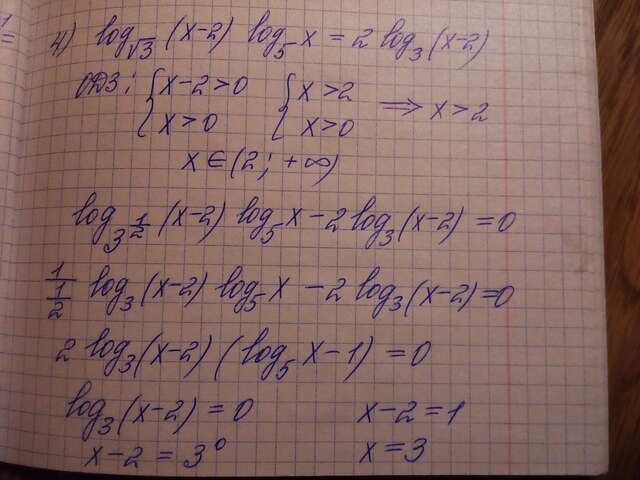 4) log_√3 (x-2) log_5 x = 2 log_3 (x-2)
ОДЗ: { x-2>0 { x>2 ⟹ x>2
x>0 x>0
x ∈ (2; +∞)
log_3^(1/2) (x-2) log_5 x - 2 log_3 (x-2) = 0
1/(1/2) log_3 (x-2) log_5 x - 2 log_3 (x-2) = 0
2 log_3 (x-2) (log_5 x - 1) = 0
log_3 (x-2) = 0 x-2 = 1
x-2 = 3^0 x = 3